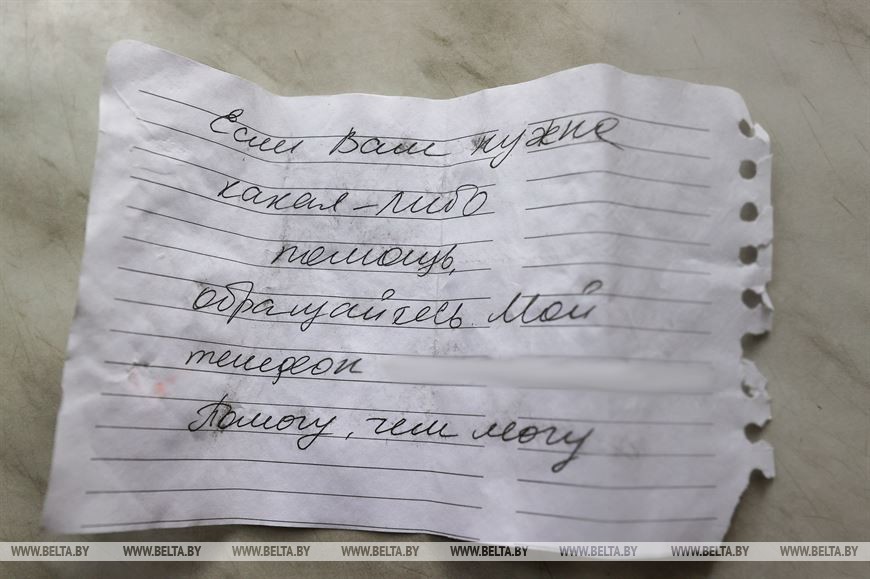 Если Вам нужна
какая-либо
помощь,
обращайтесь. Мой
телефон
Помогу, чем могу
WWW.BELTA.BY WWW.BELTA.BY WWW.BELTA.BY WWW.BELTA.BY WWW.BELTA.BY WWW.BELTA.BY WWW.BELTA.BY WWW.BELTA.BY